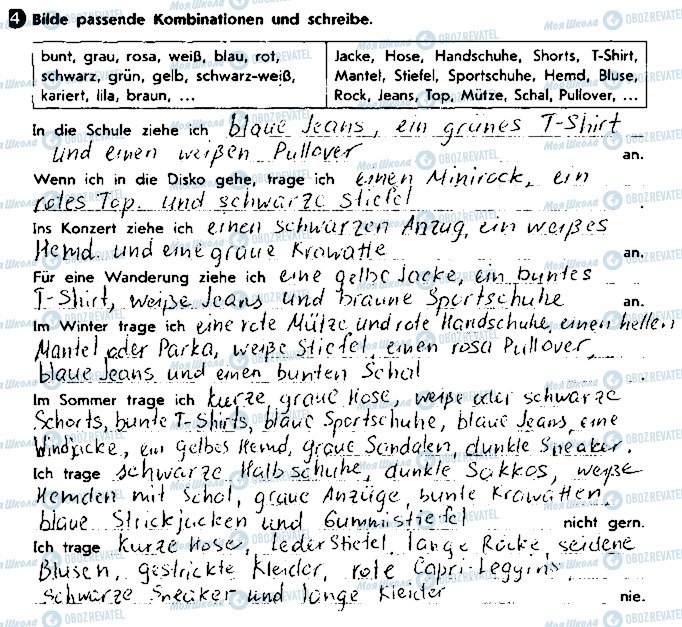 4 Bilde passende Kombinationen und schreibe.
bunt, grau, rosa, weiß, blau, rot,
schwarz, grün, gelb, schwarz-weiß,
kariert, lila, braun, ...
Jacke, Hose, Handschuhe, Shorts, T-Shirt,
Mantel, Stiefel, Sportschuhe, Hemd, Bluse,
Rock, Jeans, Top, Mütze, Schal, Pullover, ...
In die Schule ziehe ich blaue Jeans, ein grünes T-Shirt
und einen weißen Pullover an.
Wenn ich in die Disko gehe, trage ich einen Minirock, ein
rotes Top. und schwarze Stiefel .
Ins Konzert ziehe ich einen schwarzen Anzug, ein weißes
Hemd. und eine graue Krawatte an.
Für eine Wanderung ziehe ich eine gelbe Jacke, ein buntes
T-Shirt, weiße Jeans, und braune Sportschuhe an.
Im Winter trage ich eine rote Mütze und rote Handschuhe, einen hellen
Mantel oder Parka, weiße Stiefel, einen rosa Pullover,
blaue Jeans und einen bunten Schal .
Im Sommer trage ich kurze, graue Hose, weiße oder schwarze
Schorts, bunte T-Shirts, blaue Sportschuhe, blaue Jeans, eine
Windjacke, ein gelbes Hemd, graue Sandalen, dunkle Sneaker.
Ich trage schwarze Halbschuhe, dunkle Sakkos, weiße
Hemden mit Schal, graue Anzüge, bunte Krawatten,
blaue Strickjacken und Gummistiefel nicht gern.
Ich trage kurze Hose, Lederstiefel, lange Röcke, seidene
Blusen, gestrickte Kleider, rote Capri-Leggins,
schwarze Sneaker und lange Kleider nie.